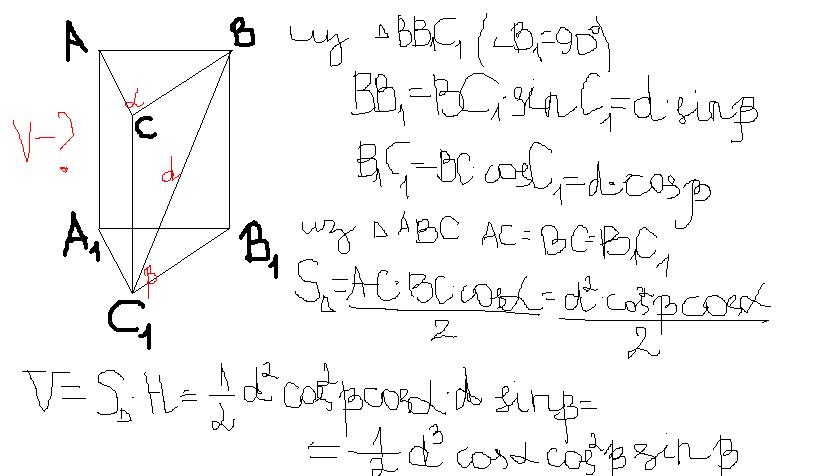 A B
α
C
V-?
d
A₁ B₁
β
C₁
из △BB₁C₁ (∠B₁=90°)
BB₁=BC₁·sinC₁=d·sinβ
B₁C₁=BC·cosC₁=d·cosβ
из △ABC AC=BC=B₁C₁
S△=AC·BC·cosα/2=d²·cos²βcosα/2
V=S△·H=1/2d²cos²βcosα·d sinβ=
=1/2d³cosαcos²βsinβ